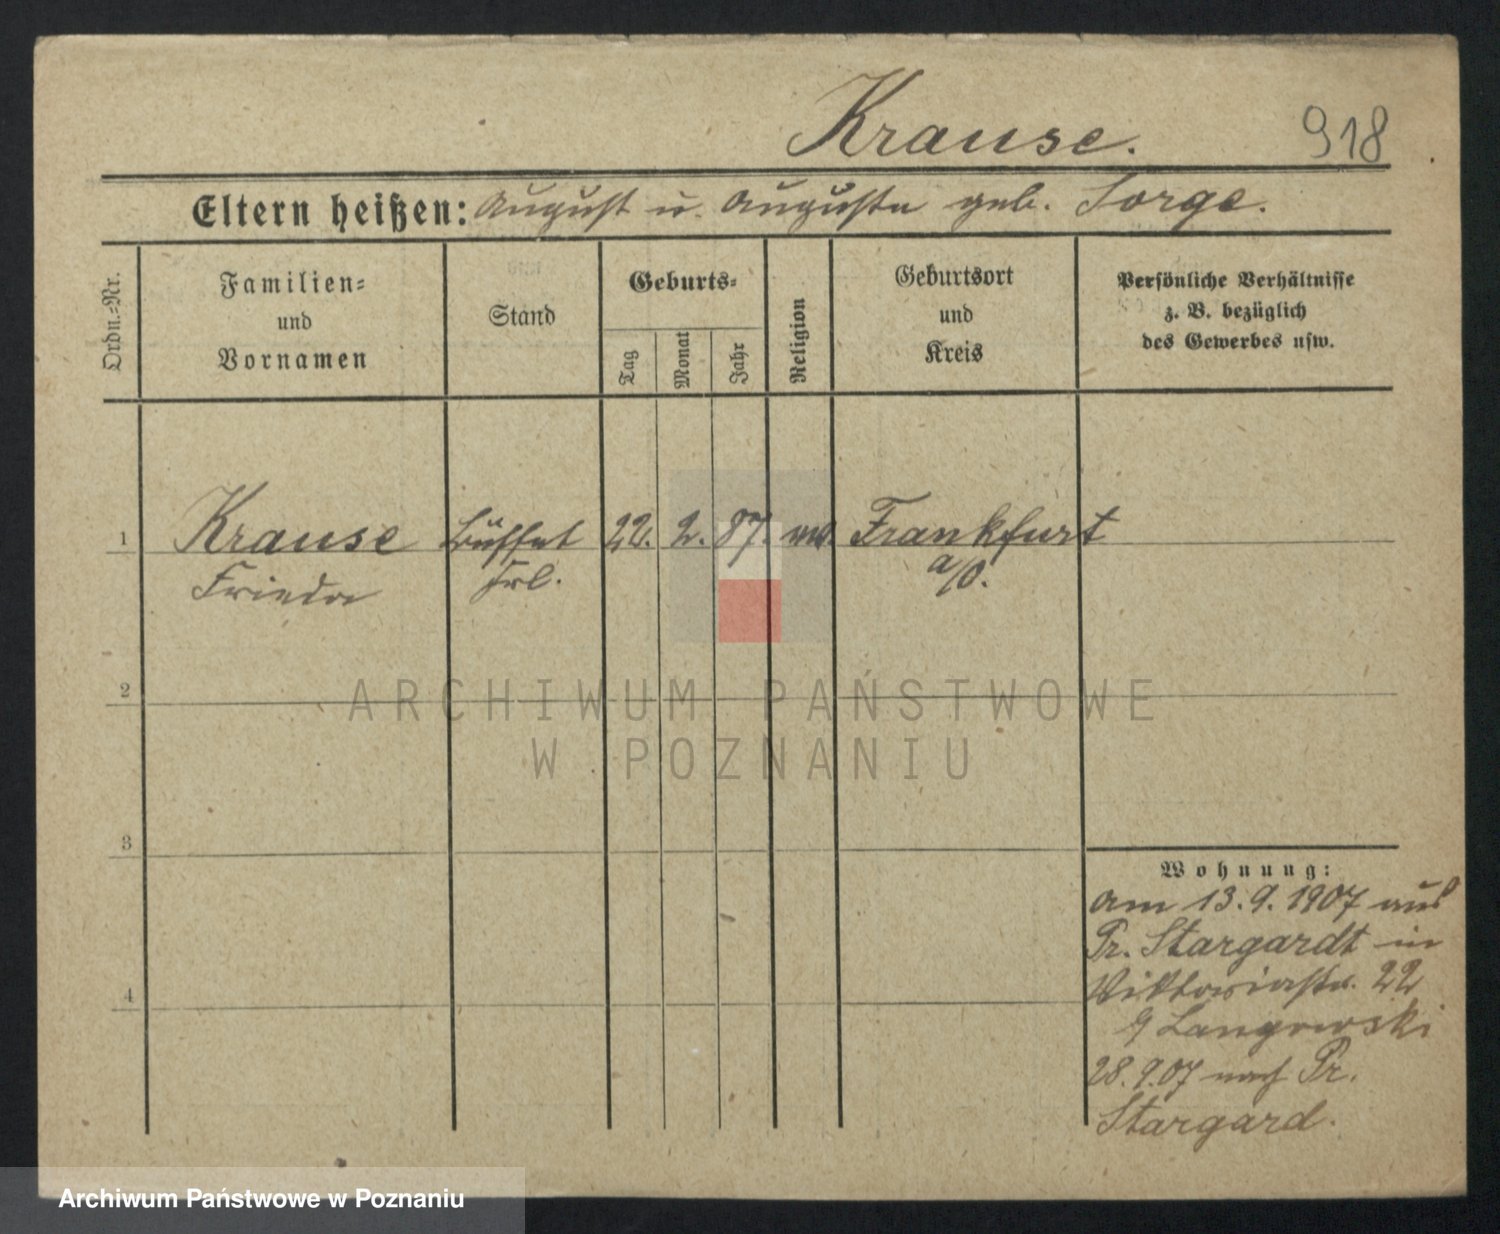 Krause. 918
Eltern heißen: August u. Auguste geb. Sorge.
Ordn.-Nr.
Familien-
und
Vornamen
Stand
Geburts-
Tag
Monat
Jahr
Religion
Geburtsort
und
Kreis
Persönliche Verhältnisse
z. B. bezüglich
des Gewerbes usw.
1 Krause Büffet 22. 2. 87. Frankfurt
Frieda Frl. a/O.
2
3
4
Wohnung:
am 13. 9. 1907 aus
Pr. Stargardt in
Viktoriastr. 22
Langowski
28. 9. 07 nach Pr.
Stargard.
ARCHIWUM PAŃSTWOWE
W POZNANIU
Archiwum Państwowe w Poznaniu